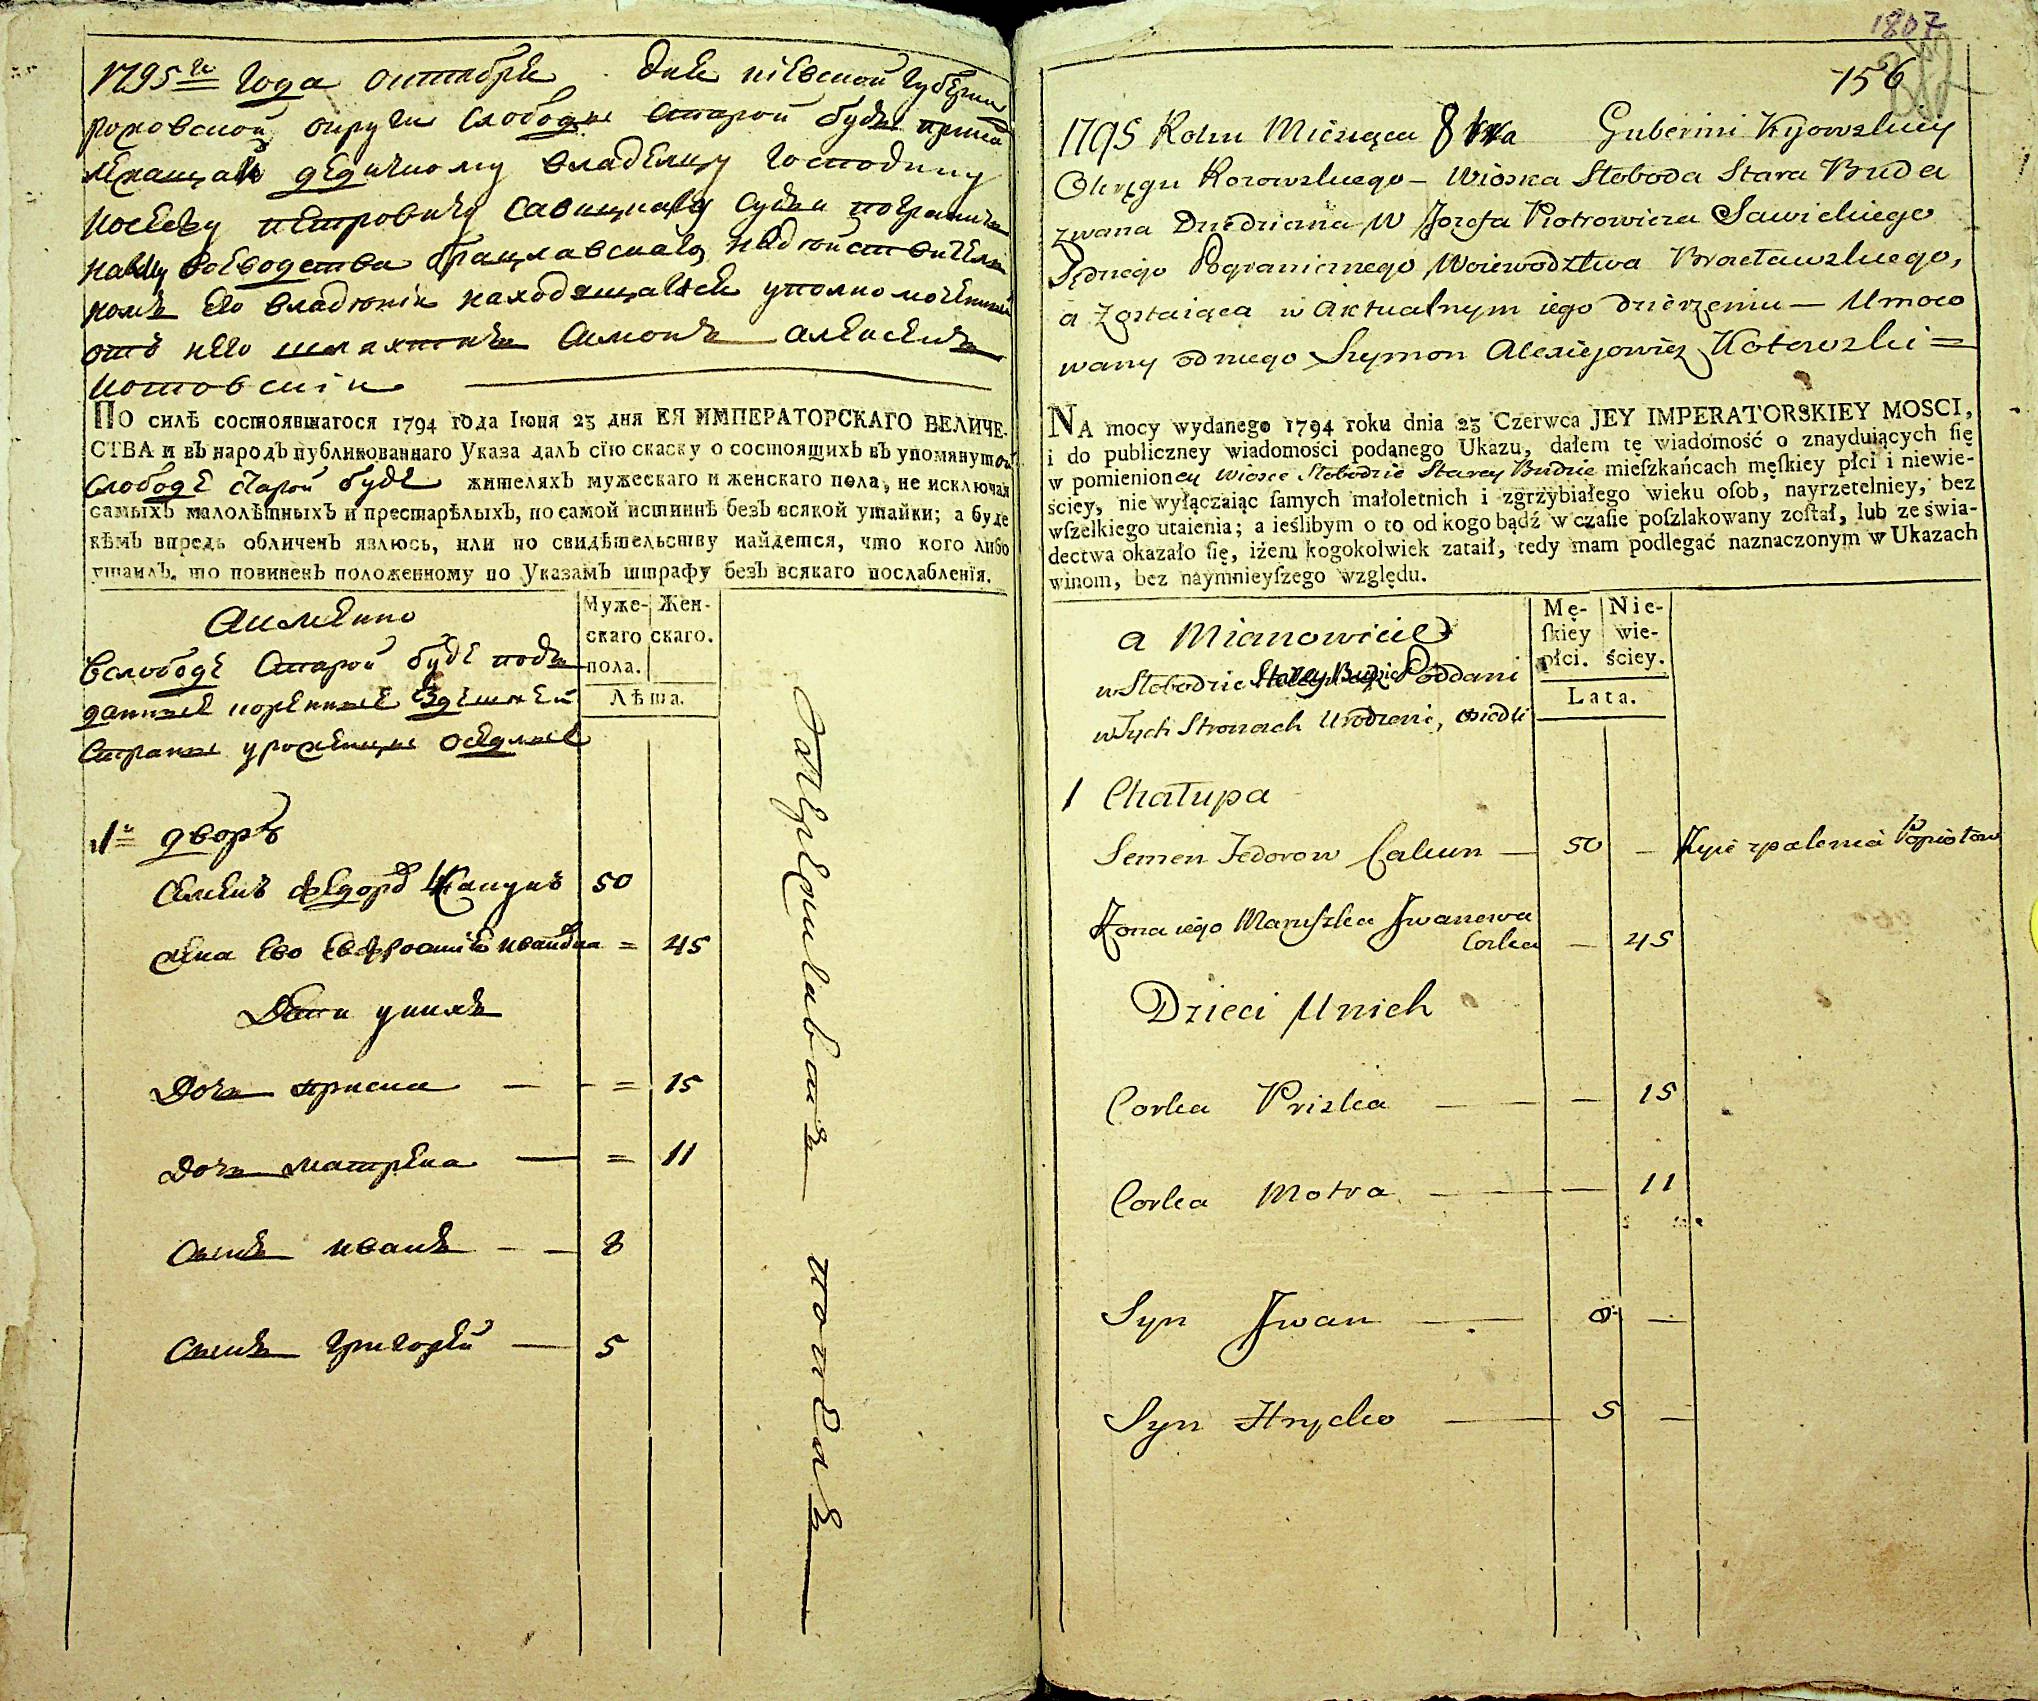 1795го Года октября дня кіевской губерніи
роховской округи слободы старой буды прина
лежащай дедичному владелцу Господину
иосефу петровичу савицкаму судьи погранич
наму воеводства брацлавскаго
ком его владеніи находящаяся уполномоченный
отъ него шляхтичъ симонъ алексеевъ
котовскій
ПО силѣ состоявшагося 1794 года Іюня 23 дня ЕЯ ИМПЕРАТОРСКАГО ВЕЛИЧЕ-
СТВА и въ народъ публикованнаго Указа далъ сїю скаску о состоящихъ въ упомянутой
слободе старой буде жителяхъ мужескаго и женскаго пола, не исключая
самыхъ малолѣтныхъ и престарѣлыхъ, по самой истиннѣ безъ всякой утайки; а буде
кѣмъ впредь обличенъ явлюсь, или по свидѣтельству найдется, что кого либо
утаилъ, то повиненъ положенному по Указамъ штрафу безъ всякаго послабленїя.
Аименно
вслободе старой буде подъ
данные коренные здешней
страны уроженцы оседлые
Муже-
скаго
пола.
Жен-
скаго.
Лѣта.
1й дворъ
Семенъ федоровъ Капунъ 50
жена ево евфросинія иванова = 45
Дети уних
Дочь приска — - = 15
дочь матрена — = 11
сынъ иванъ - — 8
сынъ григорей — 5
1807
156
1795 Roku Miesiąca 8bra Gubernii Kijowskiey
Okręgu Korowskiego – Wioska Słoboda Stara Buda
zwana Dziedziczna W Jozefa Piotrowicza Sawickiego
Sędziego Pogranicznego Woiewodztwa Bracławskiego,
a zostaiąca w Aktualnym iego dzierzeniu — Umoco
wany od niego Szymon Alexiejowicz Kotowski =
NA mocy wydanego 1794 roku dnia 23 Czerwca JEY IMPERATORSKIEY MOSCI,
i do publiczney wiadomości podanego Ukazu, dałem tę wiadomość o znayduiących ſię
w pomienioney Wiosce Słobodzie Starey Budzie mieſzkańcach męſkiey płci i niewie-
ściey, nie wyłączaiąc ſamych małoletnich i zgrzybiałego wieku oſob, nayrzetelniey, bez
wſzelkiego utaienia; a ieślibym o to od kogo bądź w czaſie poſzlakowany zoſtał, lub ze świa-
dectwa okazało ſię, iżem kogokolwiek zataił, tedy mam podlegać naznaczonym w Ukazach
winom, bez naymnieyſzego względu.
a Mianowicie
w Słobodzie Starey Budzie Poddani
w Tych Stronach Urodzeni, osiedli
Mę-
ſkiey
płci.
Nie-
wie-
ściey.
Lata.
1 Chałupa
Semen Fedorow Cakun — 50 –
Żona iego Maruszka Jwanowa
Corka — 45
Dzieci U nich
Corka Priska — — — 15
Corka Motra — — — 11
Syn Jwan — 8 —
Syn Hrycko — 5 —